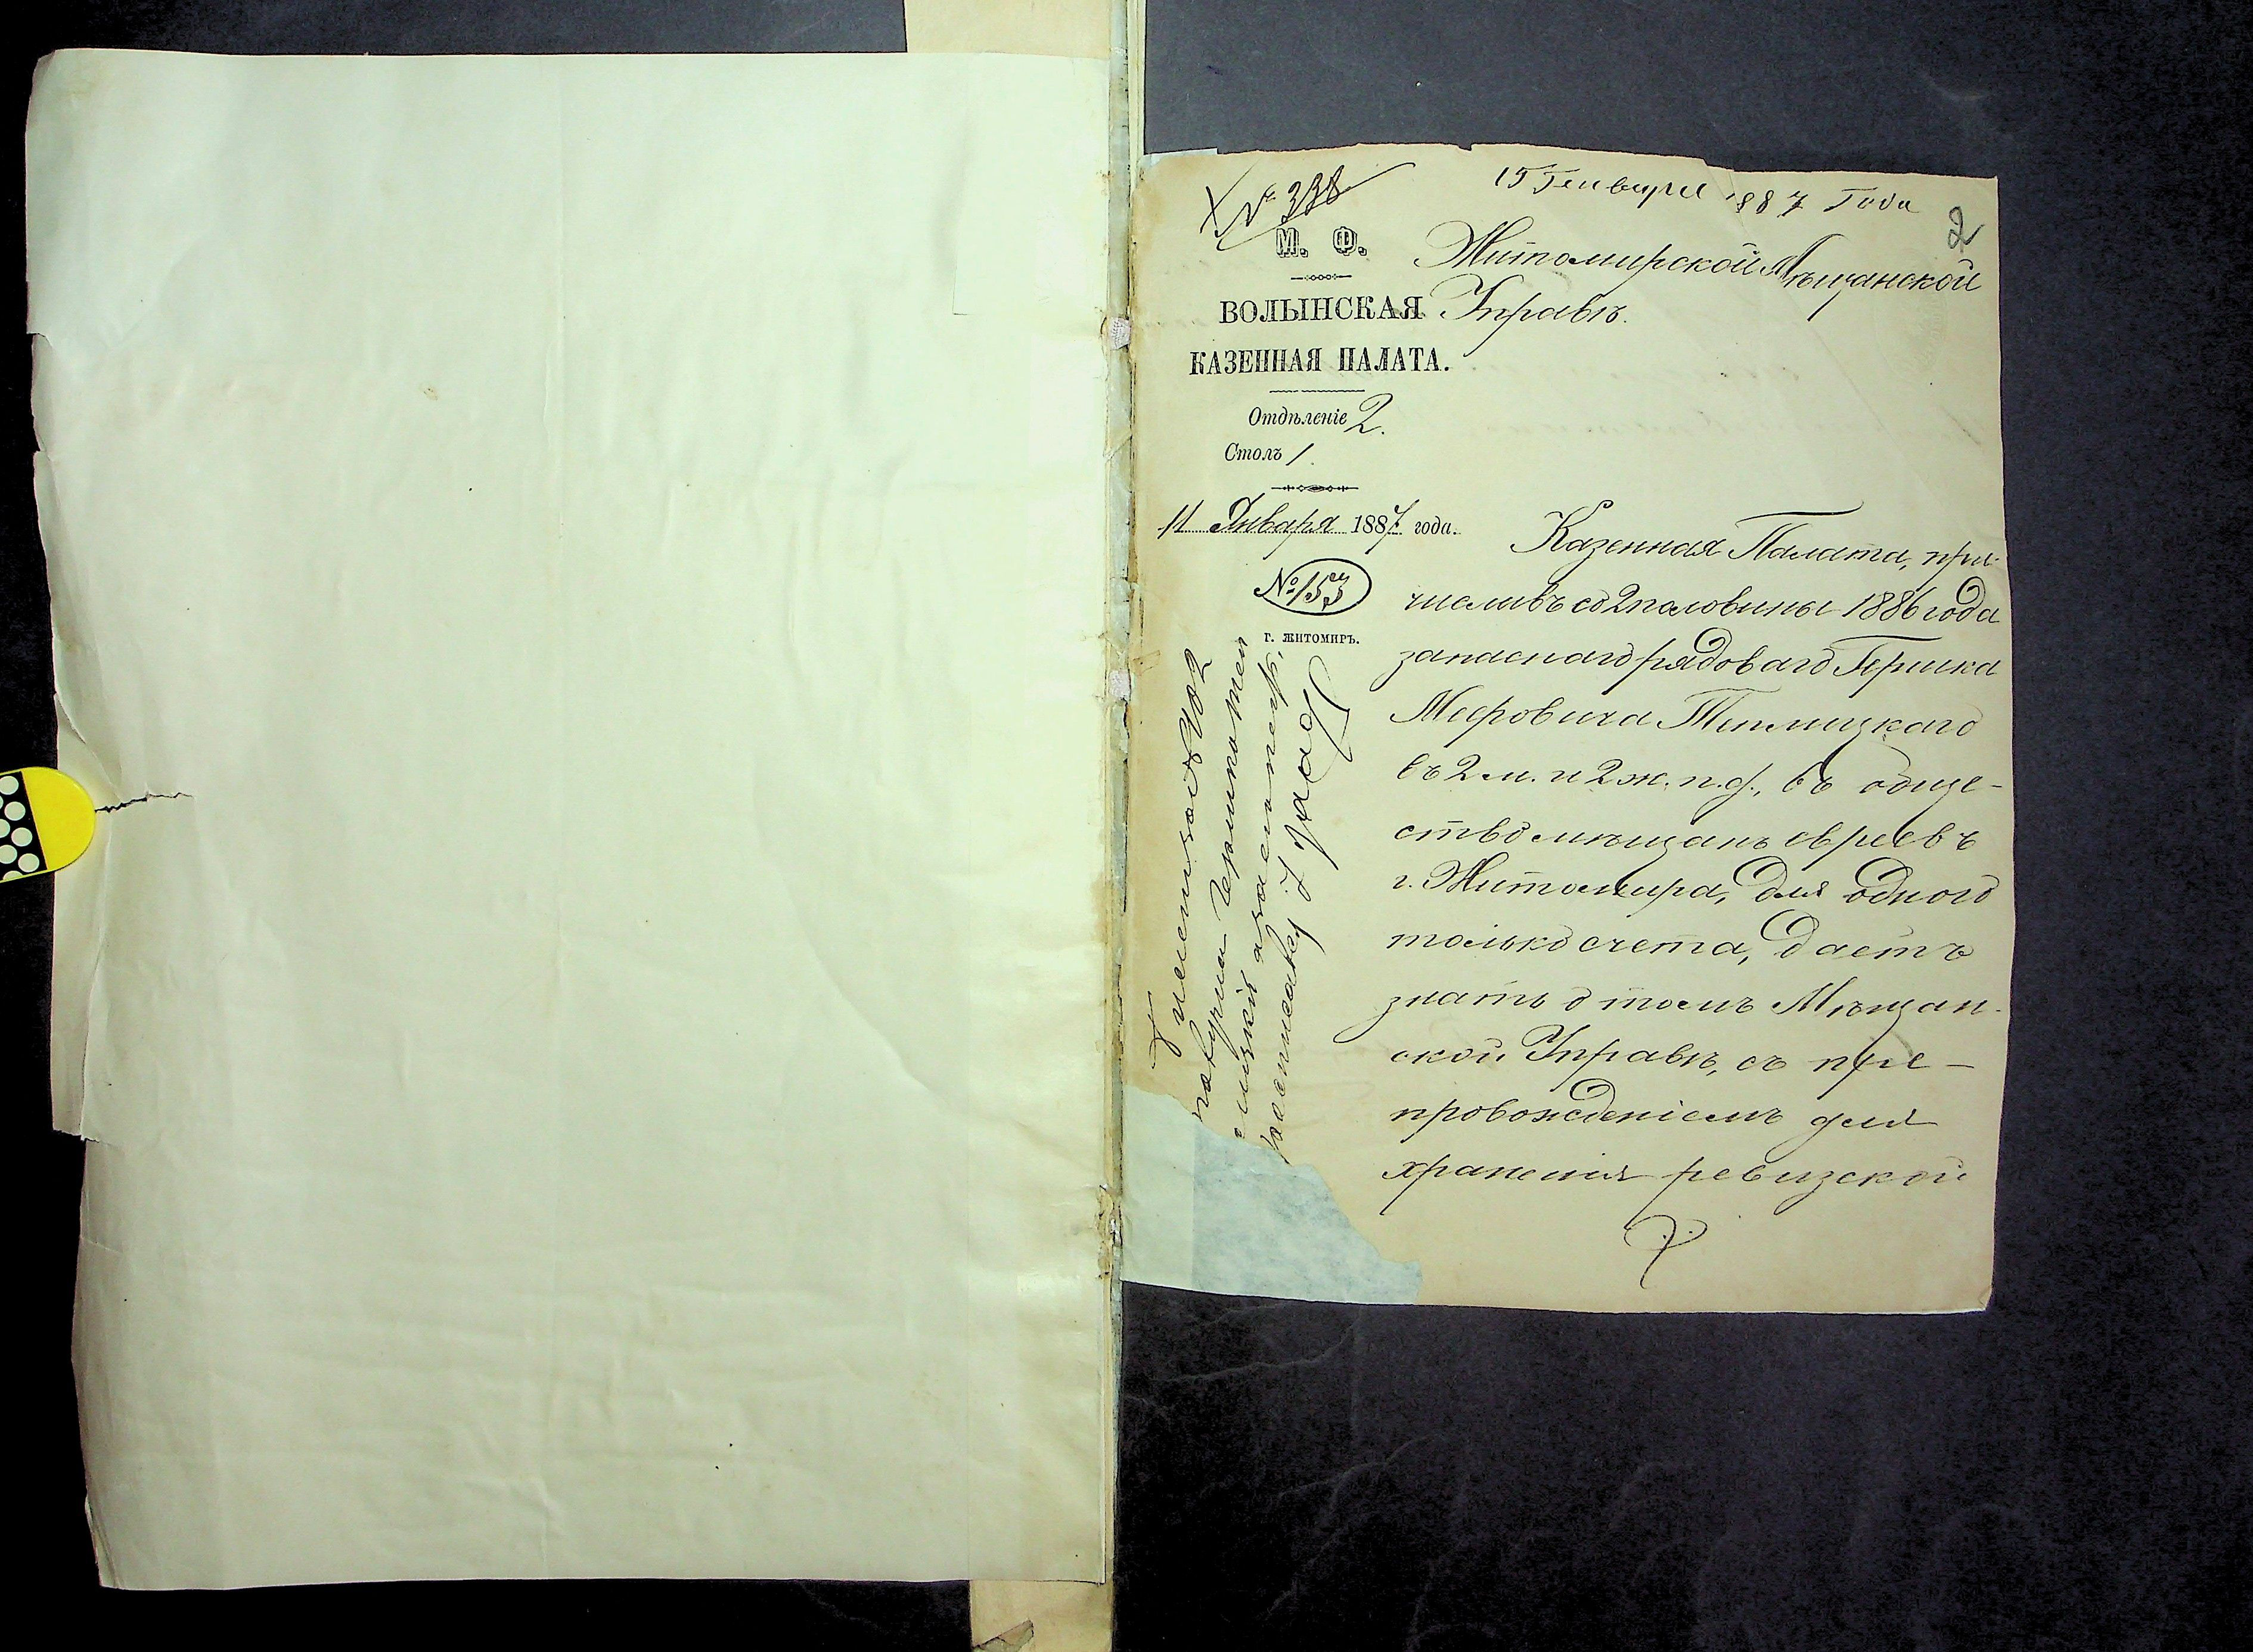 № 338
15 Генваря 1887 Года
2
М. Ф.
ВОЛЫНСКАЯ
КАЗЕННАЯ ПАЛАТА.
Отдѣленіе 2.
Столъ 1
11 Января 1887 года.
№ 153
г. ЖИТОМИРЪ.
Житомирской Мѣщанской
Управѣ.
Казенная Палата, при-
числивъ со 2 половины 1886 года
запаснаго рядоваго Гершка
Меровича Теплицкаго
въ 2 м. и 2 ж. п. д., въ обще-
ство мѣщанъ евреевъ
г. Житомира, для одного
только счета, даетъ
знать о томъ Мѣщан-
ской Управѣ, съ пре-
провожденіемъ для
храненія ревизской